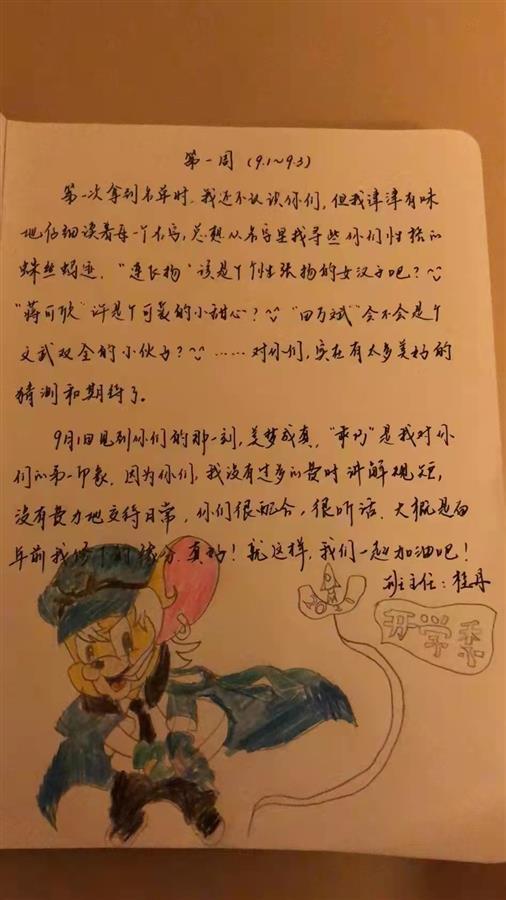 第一周（9.1~9.3）
第一次拿到名单时，我还不认识你们，但我津津有味
地仔细读着每一个名字，总想从名字里找寻些你们性格的
蛛丝蚂迹，"连飞扬"该是个个性张扬的女汉子吧？
"蒋可欣"许是个可爱的小甜心？"田万斌"会不会是个
文武双全的小伙子？……对你们，实在有太多美好的
猜测和期待了。
9月1日见到你们的那一刻，美梦成真，"乖巧"是我对你
们的第一印象，因为你们，我没有过多的费时讲解规矩，
没有费力地交待日常，你们很配合，很听话，大概是百
年前我修下的缘分，真好！就这样，我们一起加油吧！
班主任：桂丹
开学季